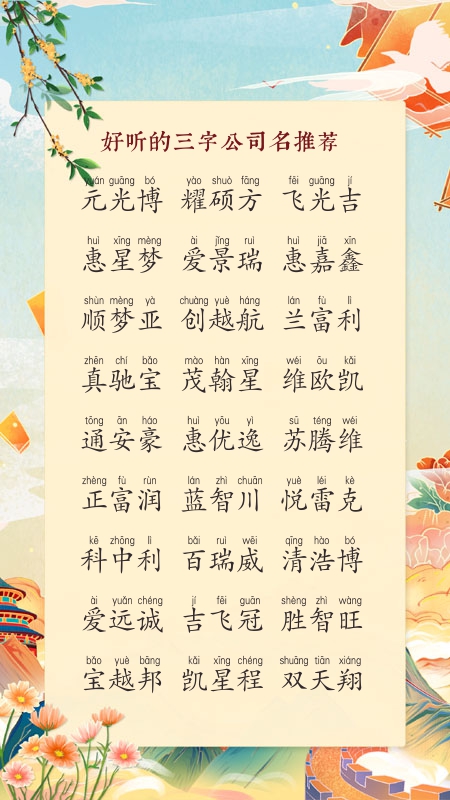 好听的三字公司名推荐
yuán guāng bó yào shuò fāng fēi guāng jí
元光博 耀硕方 飞光吉
huì xīng mèng ài jǐng ruì huì jiā xīn
惠星梦 爱景瑞 惠嘉鑫
shùn mèng yà chuàng yuè háng lán fù lì
顺梦亚 创越航 兰富利
zhēn chí bǎo mào hàn xīng wéi ōu kǎi
真驰宝 茂翰星 维欧凯
tōng ān háo huì yōu yì sū téng wéi
通安豪 惠优逸 苏腾维
zhèng fù rùn lán zhì chuān yuè léi kè
正富润 蓝智川 悦雷克
kē zhōng lì bǎi ruì wēi qīng hào bó
科中利 百瑞威 清浩博
ài yuǎn chéng jí fēi guān shèng zhì wàng
爱远诚 吉飞冠 胜智旺
bǎo yuè bāng kǎi xīng chéng shuāng tiān xiáng
宝越邦 凯星程 双天翔